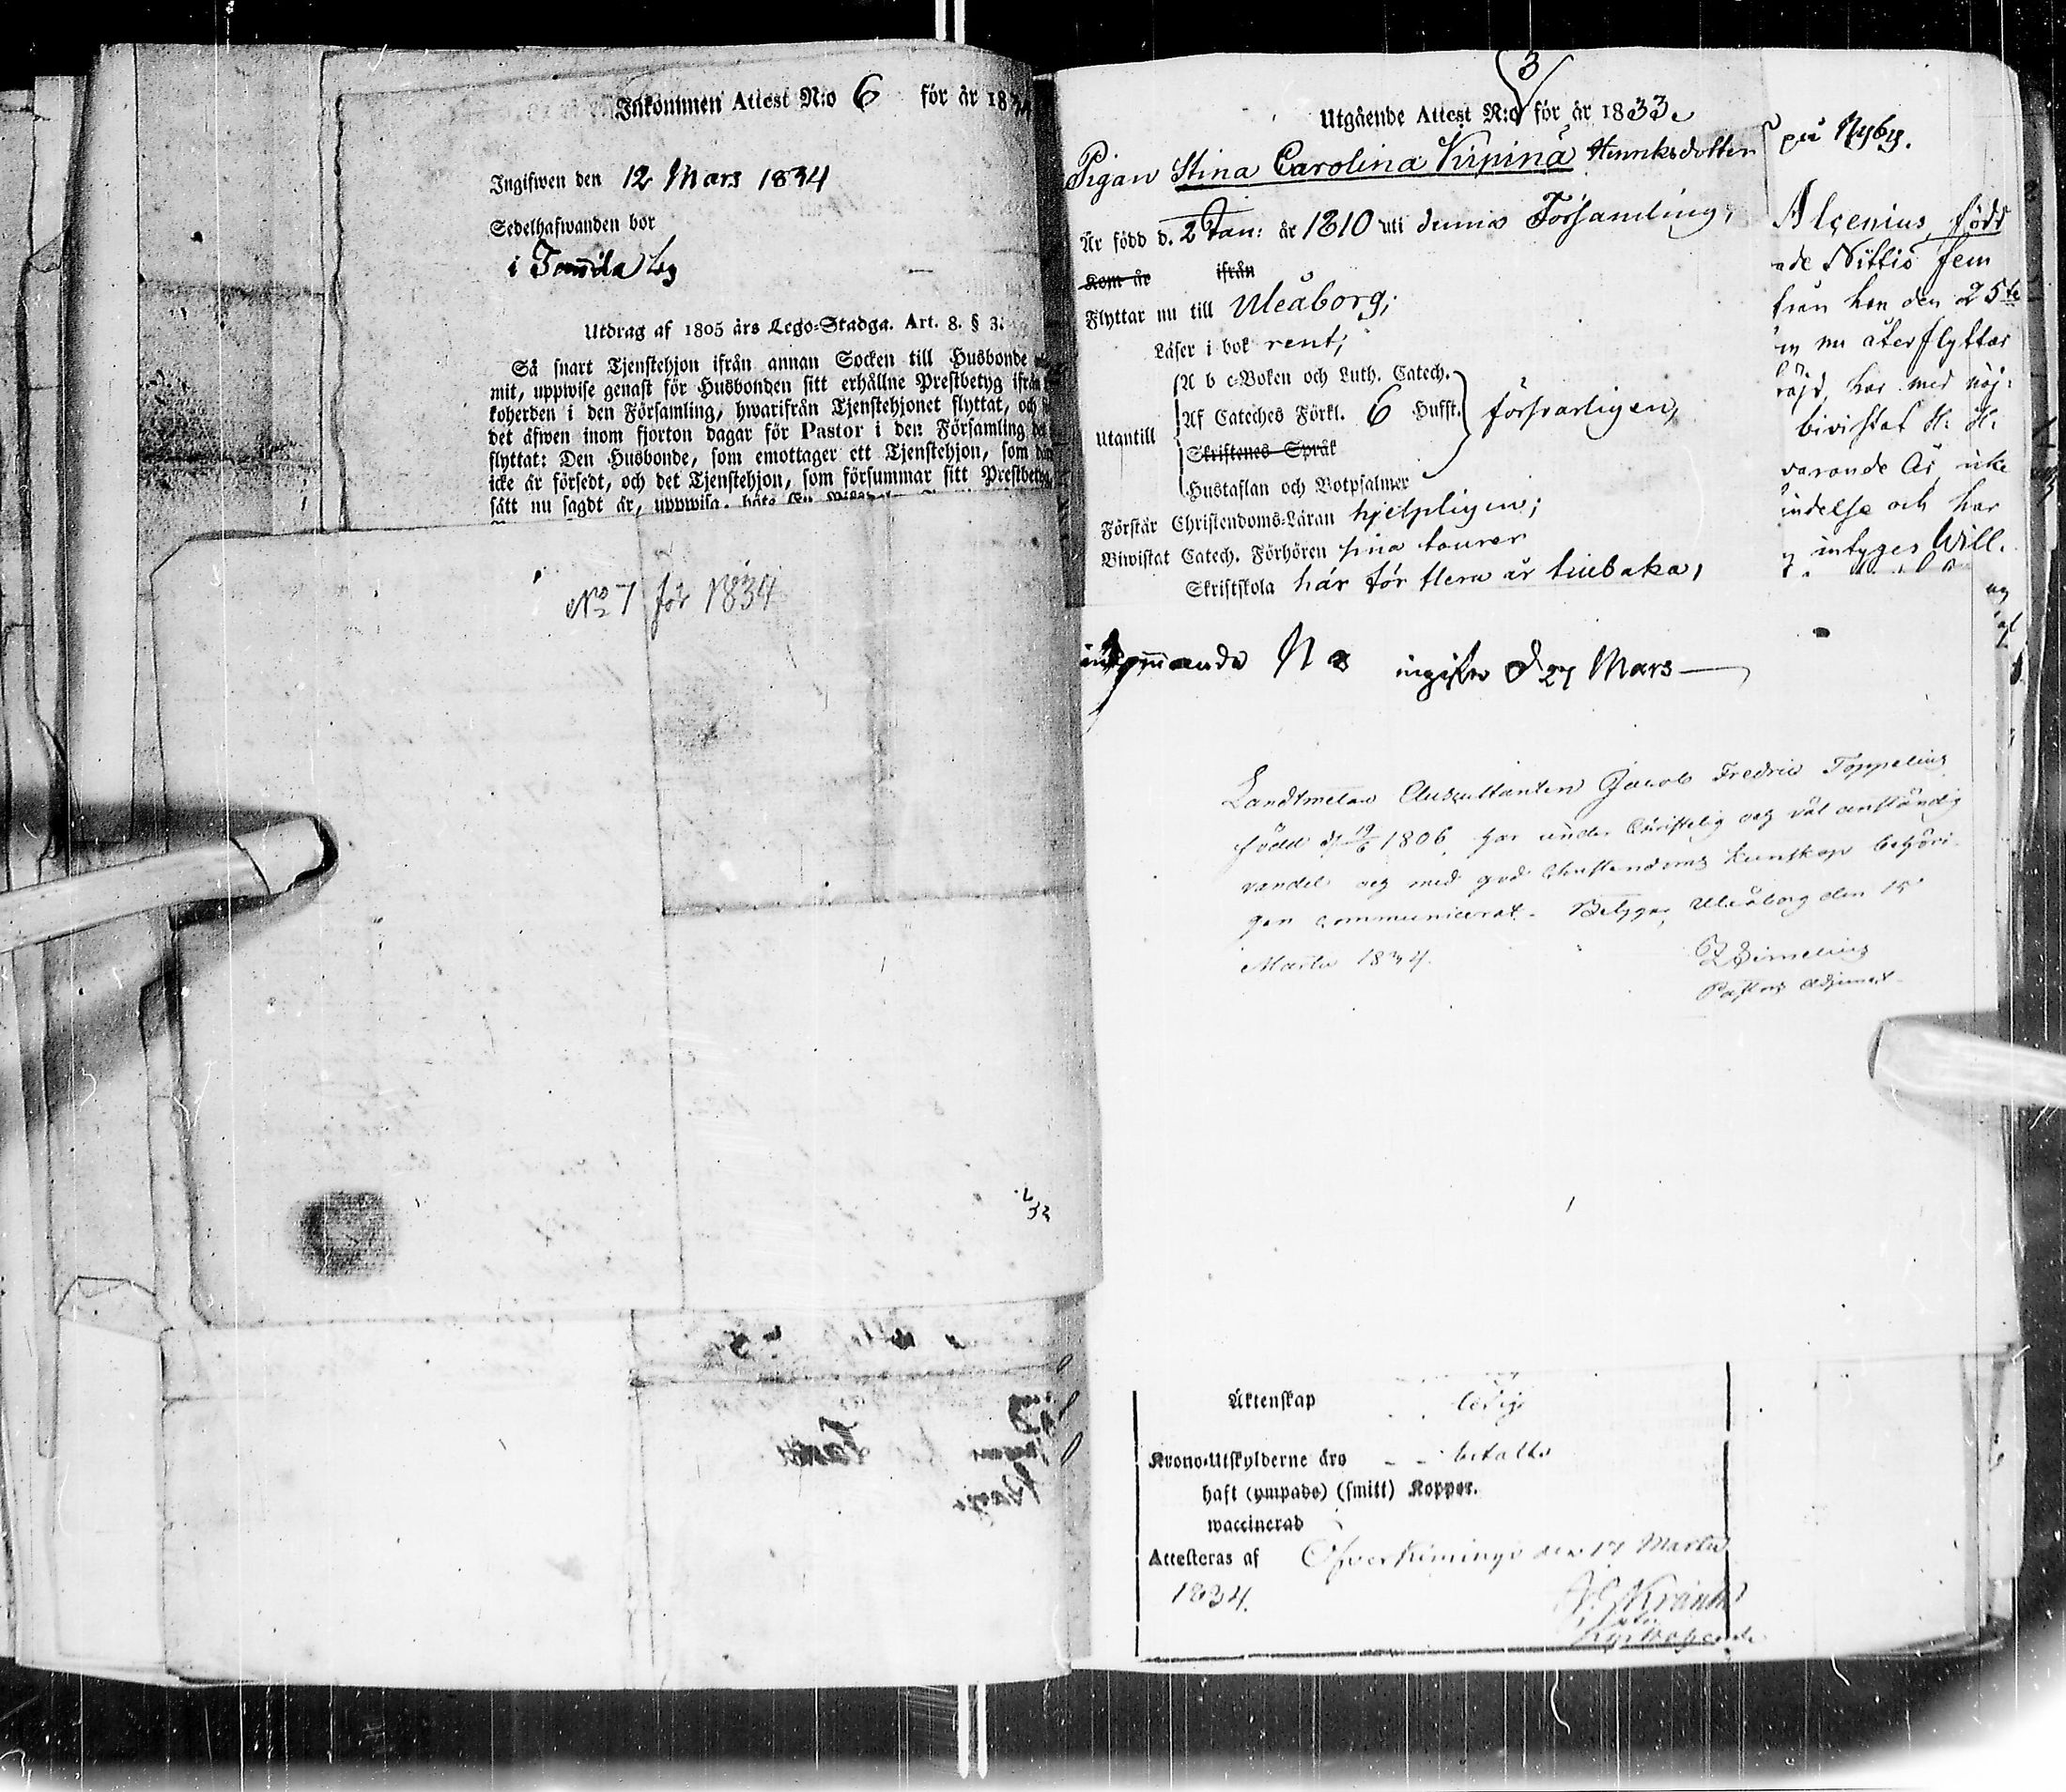 Inkommen Attest N:o 6 för år 183
Ingifwen den 12 Mars 1834
Sedelhafwanden bor
i Tannila by
Utdrag af 1805 års Lego-Stadga. Art. 8. § 3:
Så snart Tjenstehjon ifrån annan Socken till Husbonde
mit, uppwise genast för Husbonden sitt erhållne Prestbetyg ifrån
koherden i den Församling, hwarifrån Tjenstehjonet flyttat, och
det äfwen inom fjorton dagar för Pastor i den Församling
flyttat: Den Husbonde, som emottager ett Tjenstehjon, som
icke är försedt, och det Tjenstehjon, som försummar sitt Prestbetyg,
sätt nu sagdt är, uppwisa, böte
No 7 för 1834
3
Utgående Attest N:o för år 1833.
Pigan Stina Carolina Virpinä Henriksdotter
Är född d. 2 Jan: år 1810 uti denna Församling,
Kom år ifrån
Flyttar nu till Uleåborg;
Läser i bok rent;
A b c-Boken och Luth. Catech.
Utantill Af Cateches Förkl. 6 Hufst. försvarligen,
Skriftenes Språk
Hustaflan och Botpsalmer
Förstår Christendoms-Läran hjelpligen;
Biwistat Catech. Förhören sina
Skriftskola här för flera år tillbaka,
på Nyby.
Alcenius, född
ade Nittio fem
från hen den 25te
nu återflyttar
röjd, har med nöj:
bivistat H. H.
varande År icke
indelse och har
intyges Will.
inkommande N 8 ingifven d 27 Mars
Landtmätare Auscultanten Jacob Fredric Toppelius
född d 19/6 1806, har under Christelig och väl anständig
vandel och med god Christendoms kunskap behöri-
gen communicerat. Betygas, Uleåborg den 15
Martii 1834.
Pastors Adjunct
Äktenskap ledig
Krono-Utskylderne äro - - betalta
haft (ympade) (smitt) Koppor.
waccinerad
Attesteras af Öfver Kiminge den 17 Martii
1834.